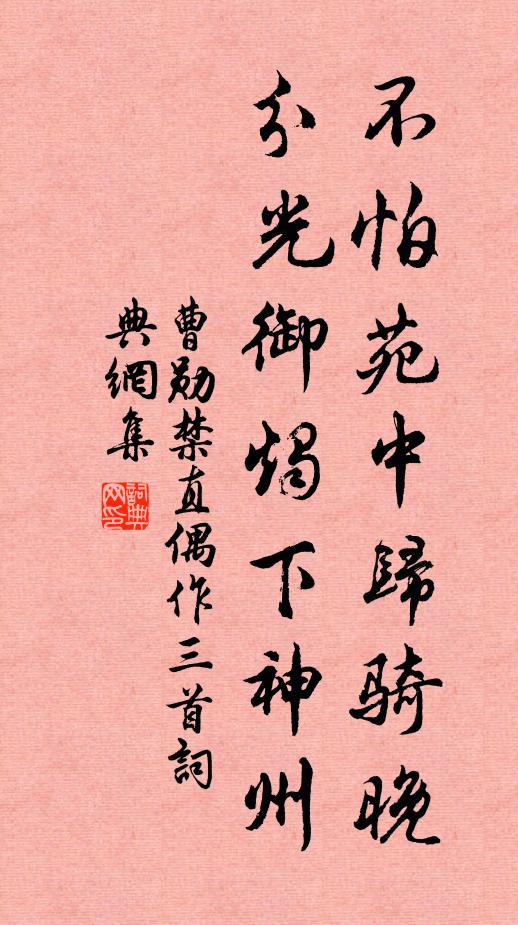 不怕苑中歸騎晚
分光御燭下神州
曹勛禁直偶作三首詞
典網集
詞典
网印